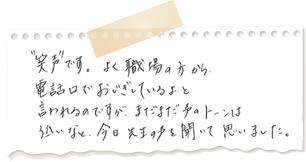 "笑声"です。よく職場の方から、
電話口でおじぎしているよと
言われるのですが、まだまだ声のトーンは
低いなと、今日先生の声を聞いて思いました。